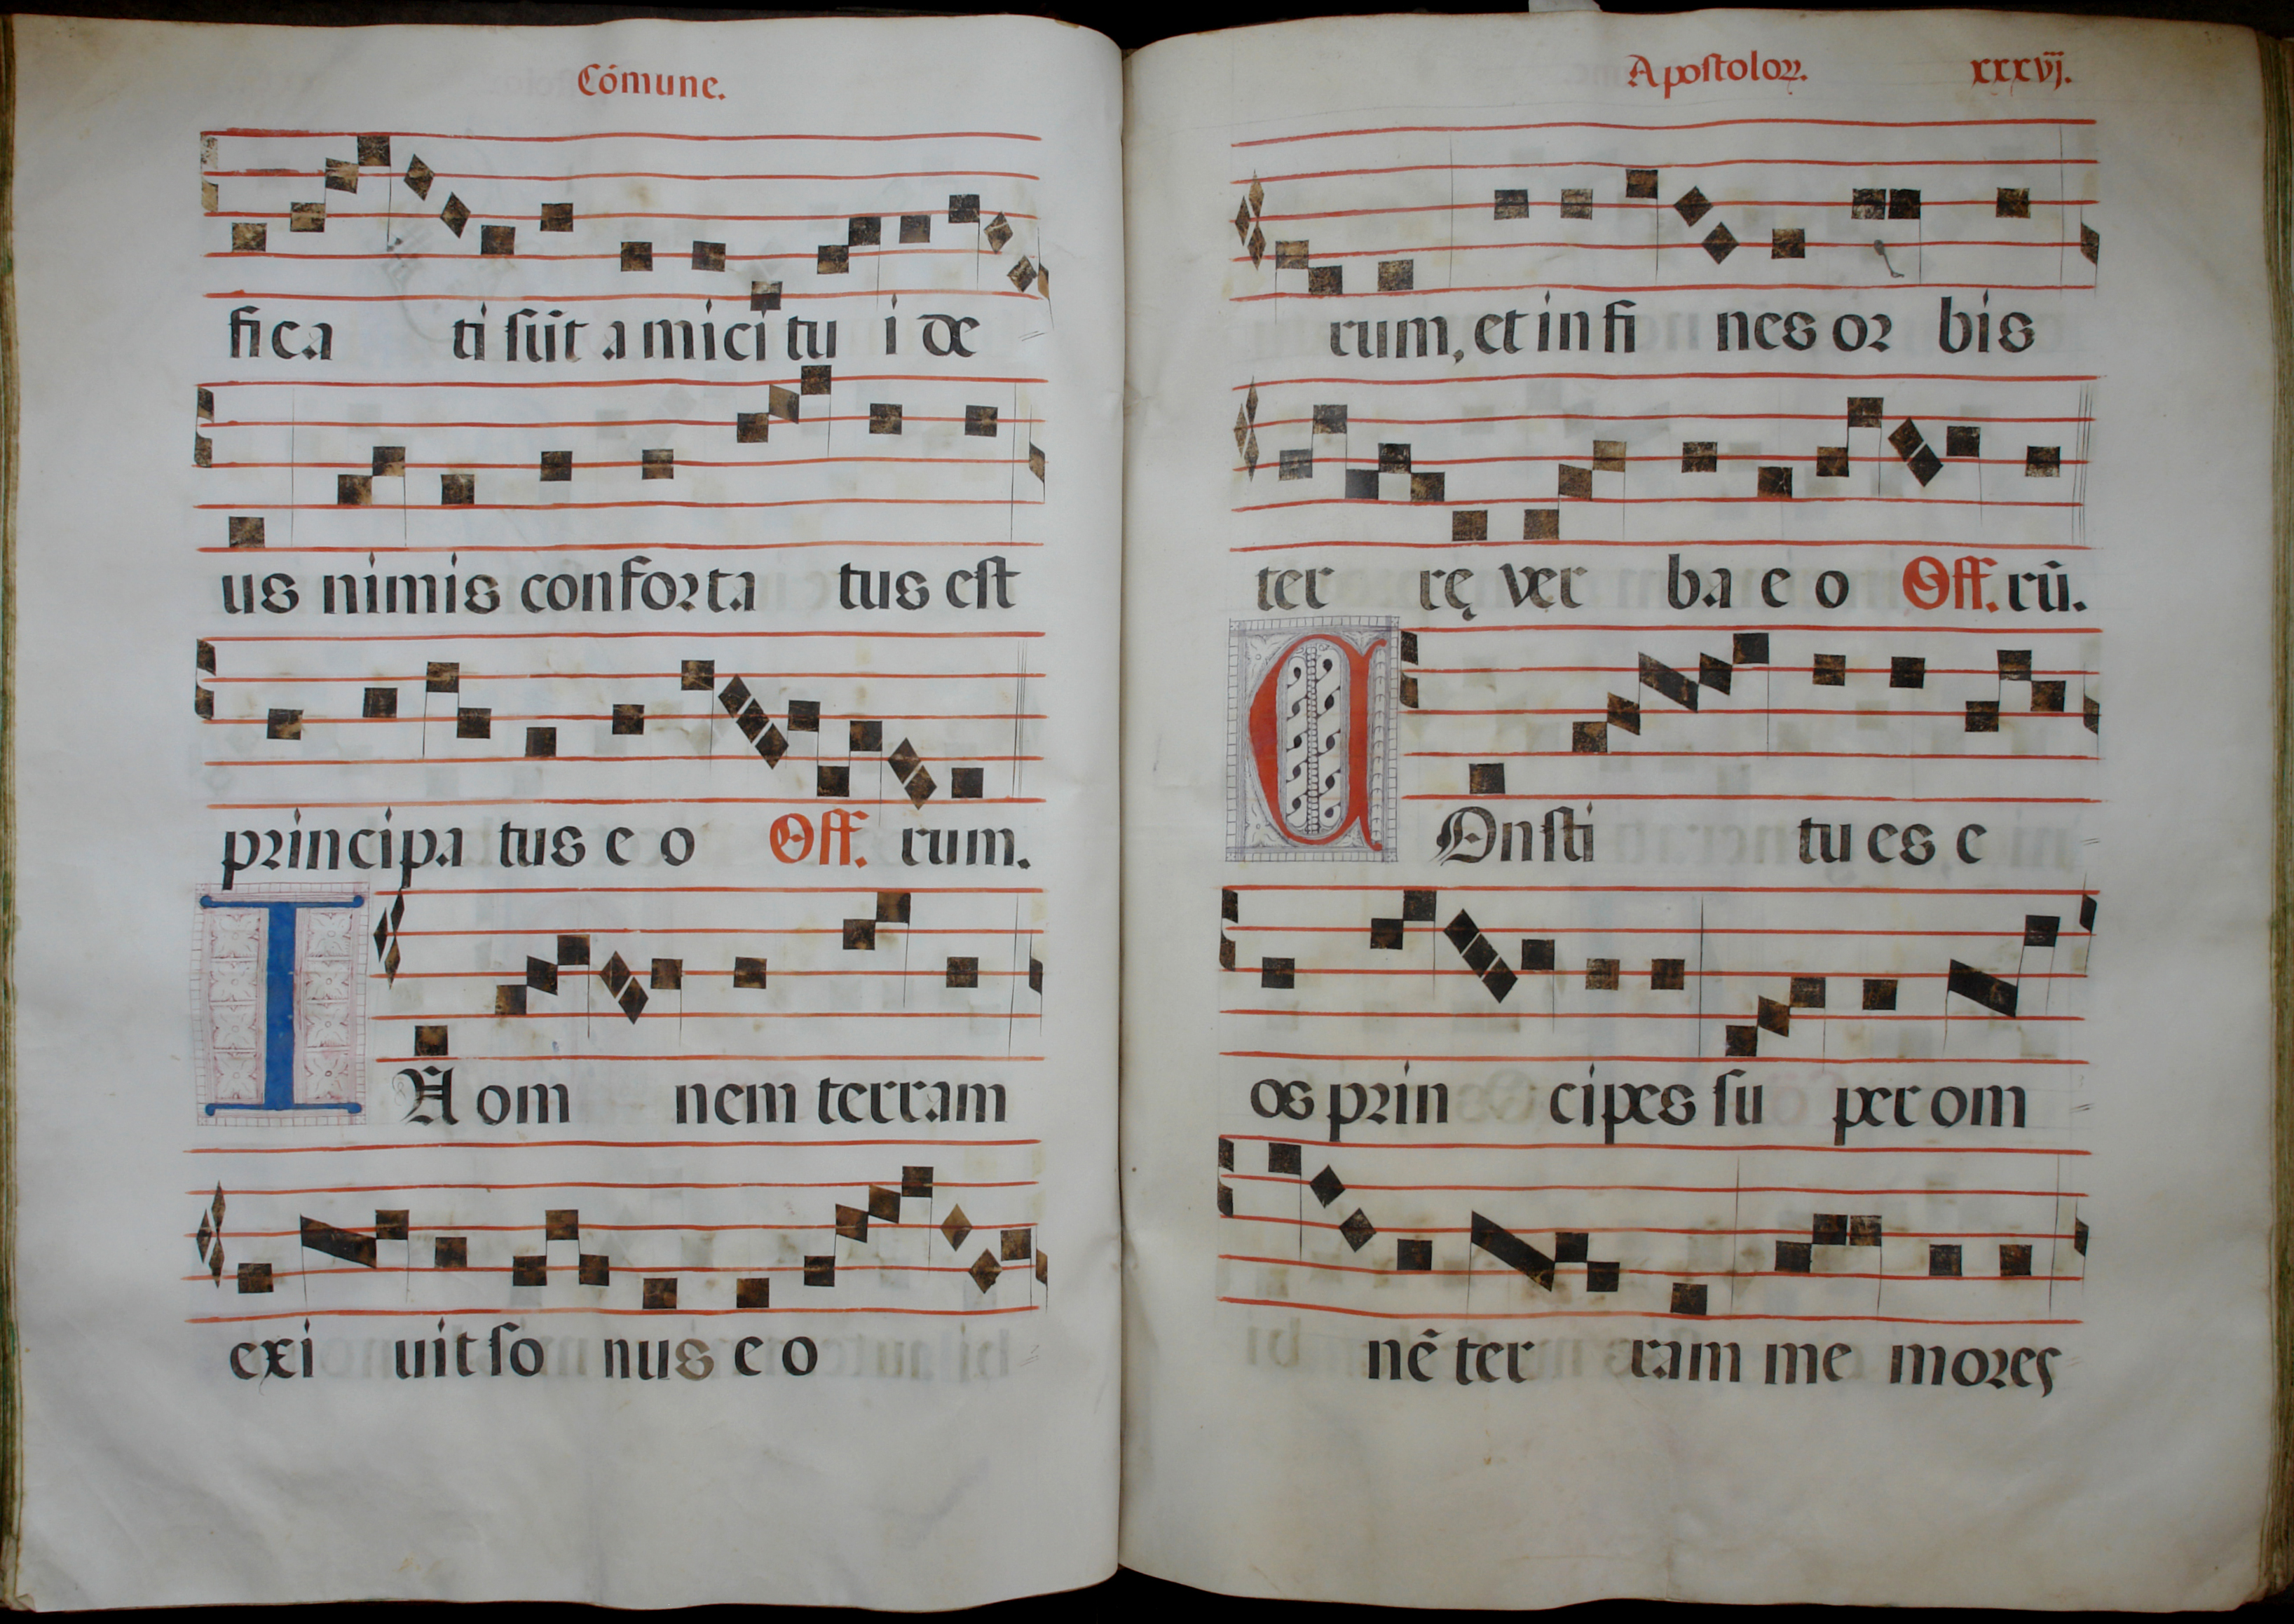 Cómune.
fica ti sũt amici tu i de
us nimis conforta tus est
principa tus e o Off. rum.
IN om nem terram
exi uit so nus e o
Apostoloꝝ. xxxvj.
rum, et in fi nes or bis
ter rę ver ba e o Off. rũ.
COnsti tu es e
os prin cipes su per om
nẽ ter ram me mores